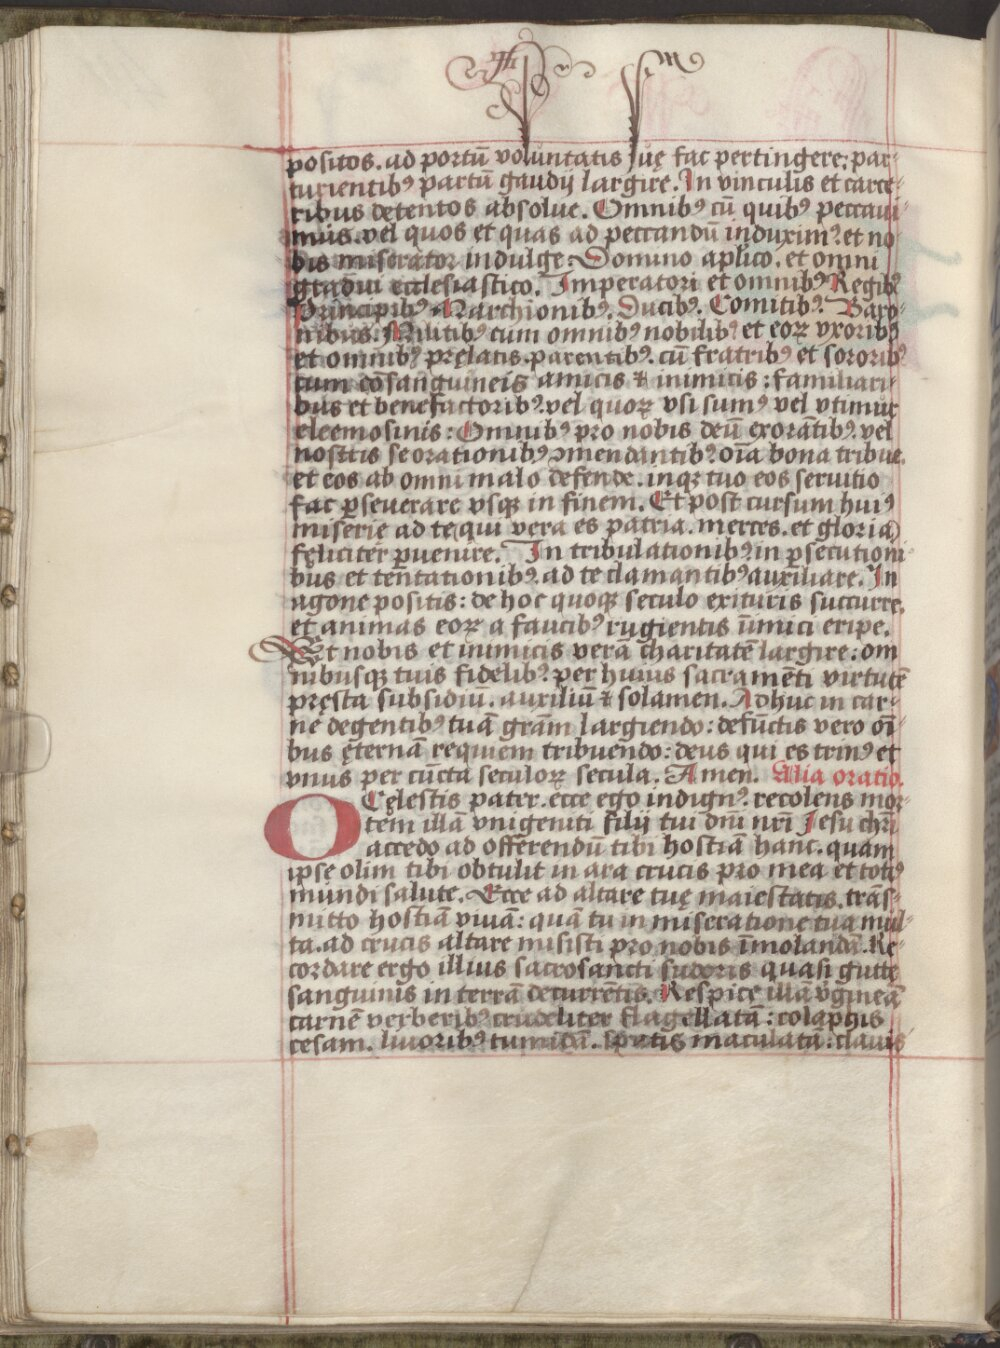 positos. ad portū voluntatis suę fac pertingere: par-
turientibꝰ partū gaudij largire. In vinculis et carce-
ribus detentos absolue. Omnibꝰ cū quibꝰ peccaui-
mus. vel quos et quas ad peccandū induximꝰ. et no
bis miserator indulge. Domino aplico. et omni
gradui ecclesiastico. Imperatori et omnibꝰ Regibꝰ
Principibꝰ Marchionibꝰ. Ducibꝰ. Comitibꝰ. Baro-
nibus. Militibꝰ cum omnibꝰ nobilibꝰ et eoꝝ vxoribꝰ
et omnibꝰ pręlatis. parentibꝰ. cū fratribꝰ et sororibꝰ
cum cōsanguineis amicis & inimicis: familiari-
bus et benefactoribꝰ. vel quoꝝ vsi sumꝰ vel vtimur
eleemosinis: Omnibꝰ pro nobis deū exorātibꝰ. vel
nostris se orationibꝰ ꝯmendantibꝰ oīa bona tribue.
et eos ab omni malo defende. inqꝫ tuo eos seruitio
fac ꝑseuerare vsqꝫ in finem. Et post cursum huiꝰ
miserie ad te qui vera es patria. merces. et gloria
feliciter ꝑuenire. In tribulationibꝰ. in ꝑsecutioni-
bus et tentationibꝰ. ad te clamantibꝰ auxiliare. In
agone positis: de hoc quoqꝫ seculo exituris succurre.
et animas eoꝝ a faucibꝰ rugientis inimici eripe.
Et nobis et inimicis verā charitatē largire: om
nibusqꝫ tuis fidelibꝰ. per huius sacramēti virtutē
pręsta subsidiū. auxiliū & solamen. Adhuc in car-
ne degentibꝰ tuā grām largiendo: defūctis vero oī-
bus ęternā requiem tribuendo: deus qui es trinꝰ et
vnus per cūcta seculoꝝ secula. Amen. Alia oratio.
O Cęlestis pater. ecce ego indignꝰ. recolens mor-
tem illā vnigeniti filij tui dnī nrī Jesu chrī
accedo ad offerendū tibi hostiā hanc. quam
ipse olim tibi obtulit in ara crucis pro mea et totiꝰ
mundi salute. Ecce ad altare tuę maiestatis. trās-
mitto hostiā viuā: quā tu in miseratione tua mul-
ta. ad crucis altare misisti pro nobis īmolandā. Re-
cordare ergo illius sacrosancti sudoris quasi gutte
sanguinis in terrā decurrētis. Respice illā vgineā
carnē verberibꝰ crudeliter flagellatā: colaphis
cesam. liuoribꝰ tumidā. sputis maculatā: clauis